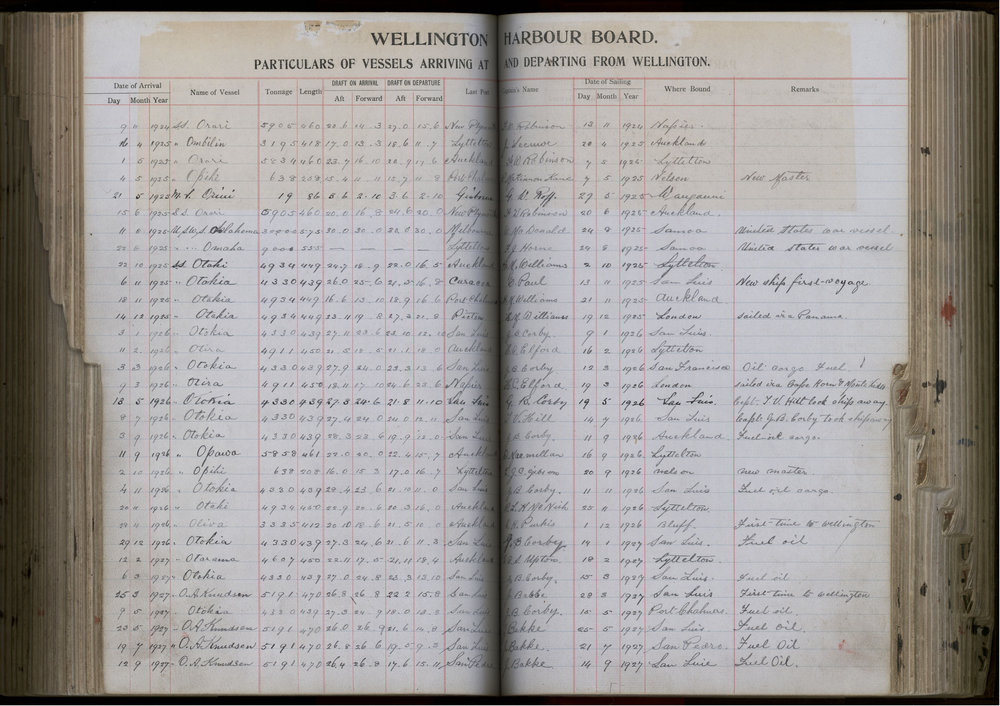 WELLINGTON HARBOUR BOARD.
PARTICULARS OF VESSELS ARRIVING AT AND DEPARTING FROM WELLINGTON.
Date of Arrival Name of Vessel Tonnage Length DRAFT ON ARRIVAL DRAFT ON DEPARTURE Last Port Captain's Name Date of Sailing Where Bound Remarks
Day Month Year Aft Forward Aft Forward Day Month Year
9 11 1924 S.S. Orari 5905 460 20.6 14.3 27.0 15.6 New Plymouth Robinson 13 11 1924 Napier
16 4 1925 " Ombilin 3195 418 17.0 13.3 18.6 11.7 Lyttelton 20 4 1925 Auckland
1 5 1925 " Orari 460 23.7 16.10 Auckland Robinson 7 5 1925 Lyttelton
4 5 1925 " Opihi 638 208 15.4 11.11 15.7 11.8 Port Chalmers 7 5 1925 Nelson New Master
21 5 1925 M.V. Orini 19 86 5.6 2.10 3.6 2.10 Gisborne 27 5 1925 Wanganui
15 6 1925 S.S. Orari 5905 460 20.0 16.8 24.6 20.0 New Plymouth Robinson 20 6 1925 Auckland.
11 8 1925 U.S.S. Oklahoma 575 30.0 30.0 30.0 30.0 Melbourne McDonald 24 8 1925 Samoa United States war vessel
" Omaha 9000 555 — — — — Lyttelton Horne 24 8 1925 Samoa United States war vessel
22 10 1925 S.S. Otaki 4934 449 24.7 18.9 22.0 16.5 Auckland Williams 2 10 1925 Lyttelton
6 11 1925 " Otokia 4330 439 26.0 25.6 21.5 16.8 Curacoa Paul 13 11 1925 San Luis New ship first-voyage
18 11 1925 " Otaki 4934 449 16.6 13.10 18.9 16.6 Port Chalmers Williams 21 11 1925 Auckland
14 12 1925 " Otaki 4934 449 23.4 19.8 27.2 21.8 Picton Williams 19 12 1925 London sailed via Panama
3 1 1926 " Otokia 4330 439 27.11 23.6 23.10 12.10 San Luis Corby 9 1 1926 San Luis.
11 2 1926 " Otira 4911 450 21.5 18.5 21.1 18.0 Auckland Elford 16 2 1926 Lyttelton
3 3 1926 " Otokia 4330 439 27.9 24.0 23.3 13.6 San Luis Corby 12 3 1926 San Francisco Oil cargo Fuel
9 3 1926 " Otira 4911 450 18.11 17.10 24.6 23.6 Napier Elford 19 3 1926 London sailed via Cape Horn & Monte Video
18 5 1926 " Otokia 4330 439 27.3 24.6 21.8 11.10 San Luis G. B. Corby 19 5 1926 San Luis. Capt. T V Hill took ship away
8 7 1926 " Otokia 4330 439 27.4 24.0 San Luis T V. Hill 14 7 1926 San Luis Capt G.B. Corby took ship away
3 9 1926 " Otokia 4330 439 28.3 23.6 19.9 12.0 San Luis Corby. 11 9 1926 Auckland Fuel oil cargo.
11 9 1926 " Opawa 5858 461 22.0 20.0 22.4 15.7 Auckland Macmillan 16 9 1926 Lyttelton
2 10 1926 " Opihi 638 208 16.0 15.3 17.0 16.7 Lyttelton Gibson 20 9 1926 nelson new master.
4 11 1926 " Otokia 4330 439 28.4 23.6 21.10 11.0 San Luis Corby. 11 11 1926 San Luis Fuel oil cargo.
20 11 1926 " Otaki 4934 450 22.9 20.6 20.3 16.0 Auckland McNish 25 11 1926 Lyttelton.
11 1926 " Oliva 3335 412 20.10 18.6 21.5 10.0 Auckland Purkis 1 12 1926 Bluff. First-time to wellington
29 12 1926 " Otokia 4330 439 27.3 24.6 21.6 11.3 San Luis B Corby 14 1 1927 San Luis. Fuel oil
12 2 1927 " Otarama 4607 450 22.11 17.5 21.11 18.4 Auckland Upton 18 2 1927 Lyttelton.
6 3 1927 " Otokia 4330 439 27.0 24.8 23.3 13.10 San Luis B. Corby. 15 3 1927 San Luis. Fuel oil
25 3 1927 " O.A. Knudsen 5191 470 26.8 26.8 22.2 15.8 San Luis Bakke 28 3 1927 San Luis First-time to wellington
9 5 1927 " Otokia 4330 439 27.3 24.9 18.0 13.8 San Luis B. Corby. 15 5 1927 Port Chalmers. Fuel oil.
23 5 1927 " O.A. Knudsen 5191 470 26.0 26.9 21.6 14.8 San Luis Bakke 25 5 1927 San Luis Fuel Oil.
19 7 1927 " O.A. Knudsen 5191 470 26.8 26.6 19.5 9.3 San Luis Bakke. 21 7 1927 San Pedro. Fuel Oil
12 9 1927 " O.A. Knudsen 5191 470 26.4 26.8 17.6 15.11 San Pedro Bakke 14 9 1927 San Luis Fuel Oil.